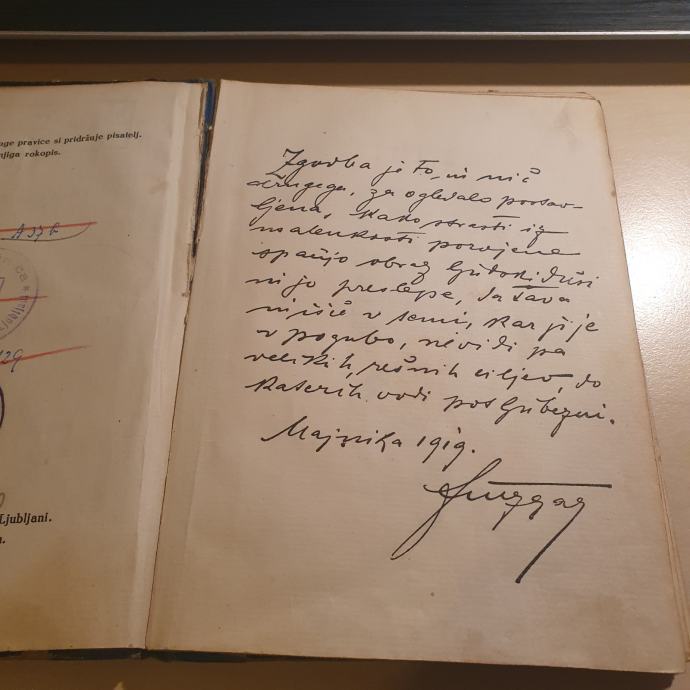 oge pravice si pridržuje pisatelj.
njiga rokopis.
A 37 b
129
Ljubljani.
Zgodba je to, in nič
drugega, za ogledalo postav-
ljena, kako strasti iz
malenkosti porojene
obraz ljudski duši
in jo preslepe, da tava
v temi, kar ji je
v pogubo, ne vidi pa
velikih, rešnih ciljev, do
katerih vodi pot ljubezni.
Majnika 1919.